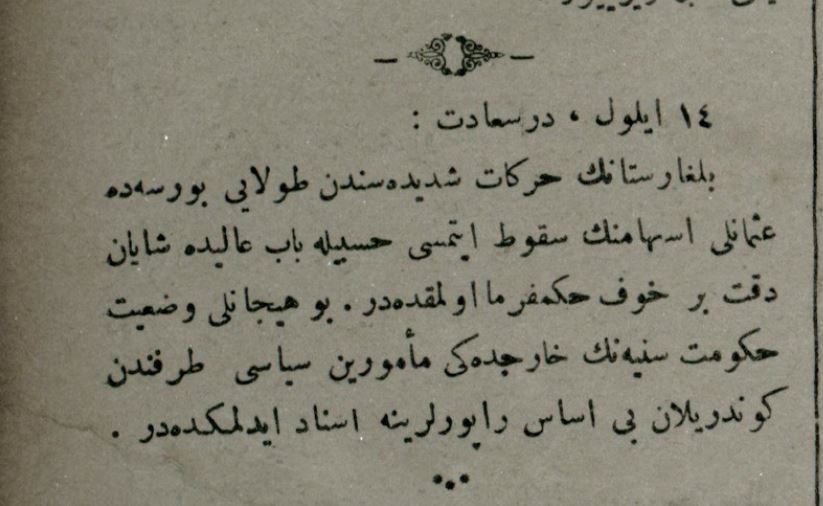 ١٤ ايلول ، درسعادت :
بلغارستانك حركات شديده‌سندن طولايى بورسه‌ده
عثمانلى اسهامنك سقوط ايتمسى حسبيله باب عاليده شايان
دقت بر خوف حكمفرما اولمقده‌در . بو هيجانلى وضعيت
حكومت سنيه‌نك خارجده‌كى مأمورين سياسى طرفندن
كوندريلان بى اساس راپورلرينه اسناد ايدلمكده‌در .